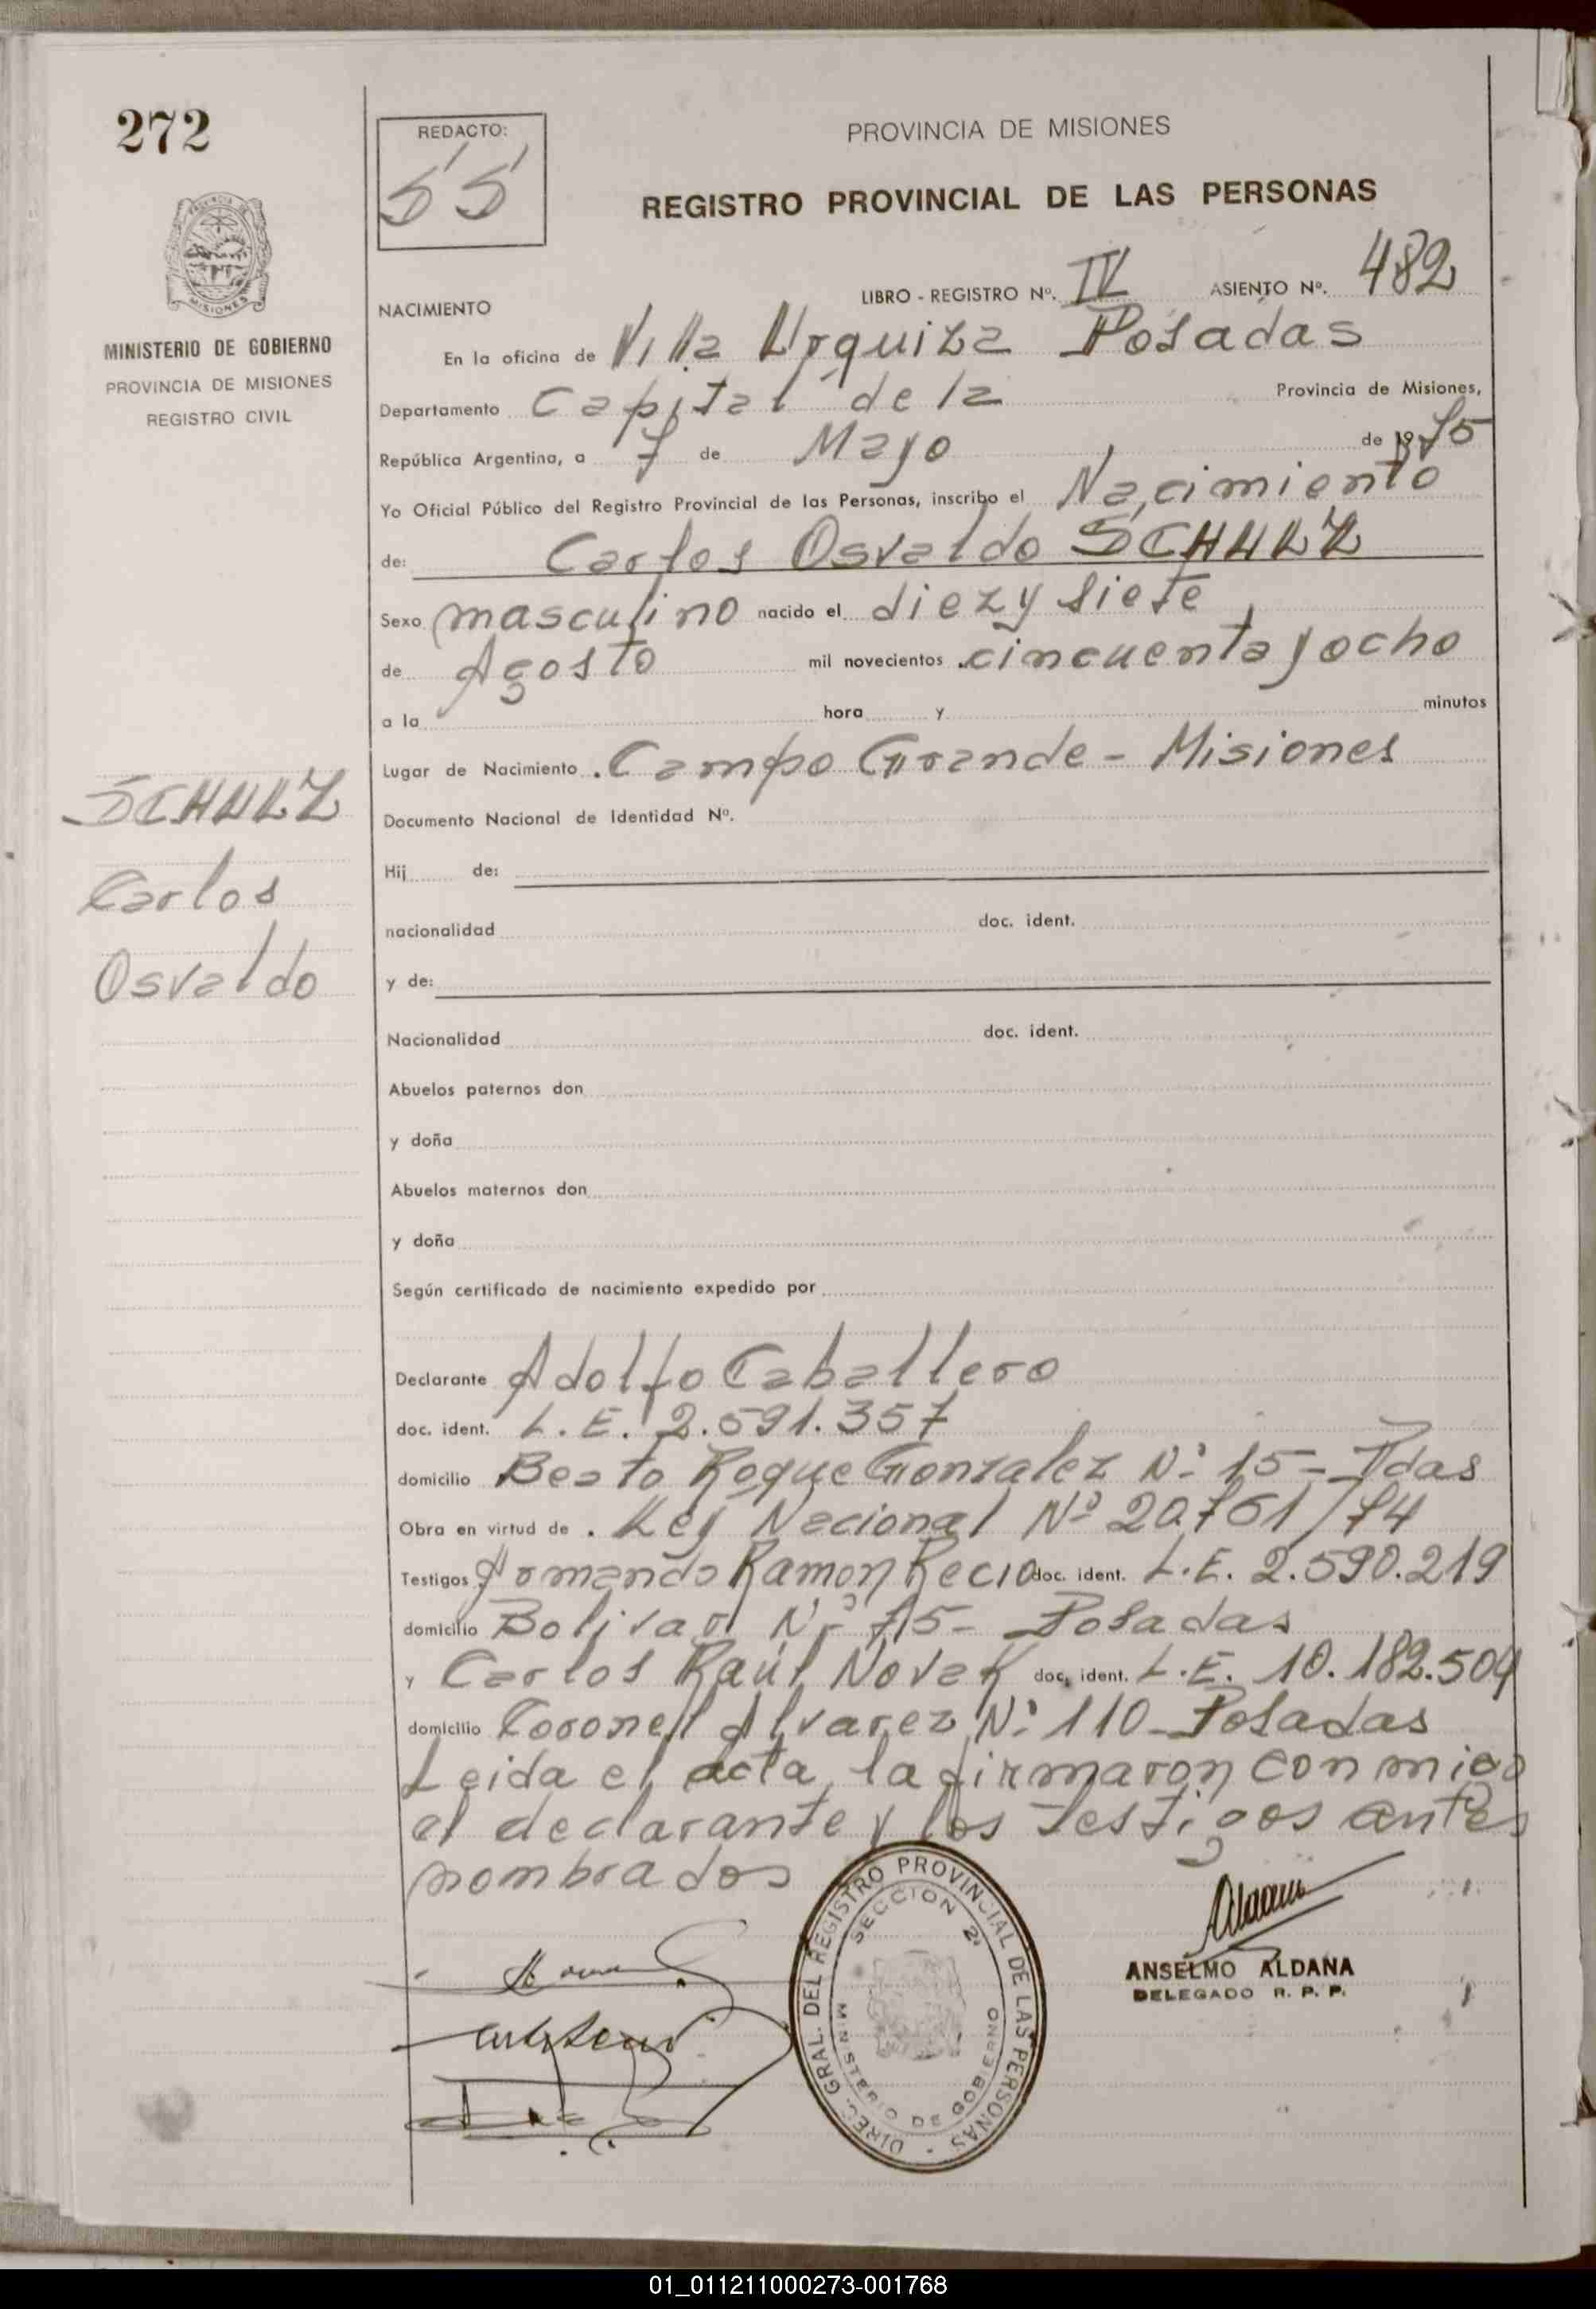 272
REDACTO:
55
PROVINCIA DE MISIONES
REGISTRO PROVINCIAL DE LAS PERSONAS
MISIONES
MINISTERIO DE GOBIERNO
PROVINCIA DE MISIONES
REGISTRO CIVIL
LIBRO - REGISTRO Nº. IV ASIENTO Nº. 482
NACIMIENTO
En la oficina de Villa Urquiza Posadas
Departamento Capital de la Provincia de Misiones,
República Argentina, a 7 de Mayo de 1975
Yo Oficial Público del Registro Provincial de las Personas, inscribo el Nacimiento
de: Carlos Osvaldo SCHULZ
Sexo masculino nacido el diez y siete
de Agosto mil novecientos cincuenta y ocho
a la hora y minutos
Lugar de Nacimiento Campo Grande - Misiones
SCHULZ
Carlos
Osvaldo
Documento Nacional de Identidad Nº.
Hij de:
nacionalidad doc. ident.
y de:
Nacionalidad doc. ident.
Abuelos paternos don
y doña
Abuelos maternos don
y doña
Según certificado de nacimiento expedido por
Declarante Adolfo Caballero
doc. ident. L.E. 2.591.357
domicilio Beato Roque Gonzalez Nº 15 - Pdas
Obra en virtud de Ley Nacional Nº 20.761/74
Testigos Armando Ramon Recio doc. ident. L.E. 2.590.219
domicilio Bolivar Nº - Posadas
y Carlos Raúl Novak doc. ident. L.E. 10.182.504
domicilio Coronel Alvarez Nº 110 - Posadas
Leida el acta, la firmaron conmigo
el declarante y los testigos antes
nombrados
DIREC. GRAL. DEL REGISTRO PROVINCIAL DE LAS PERSONAS -
SECCION 2ª
MINISTERIO DE GOBIERNO
ANSELMO ALDANA
DELEGADO R. P. P.
01_011211000273-001768